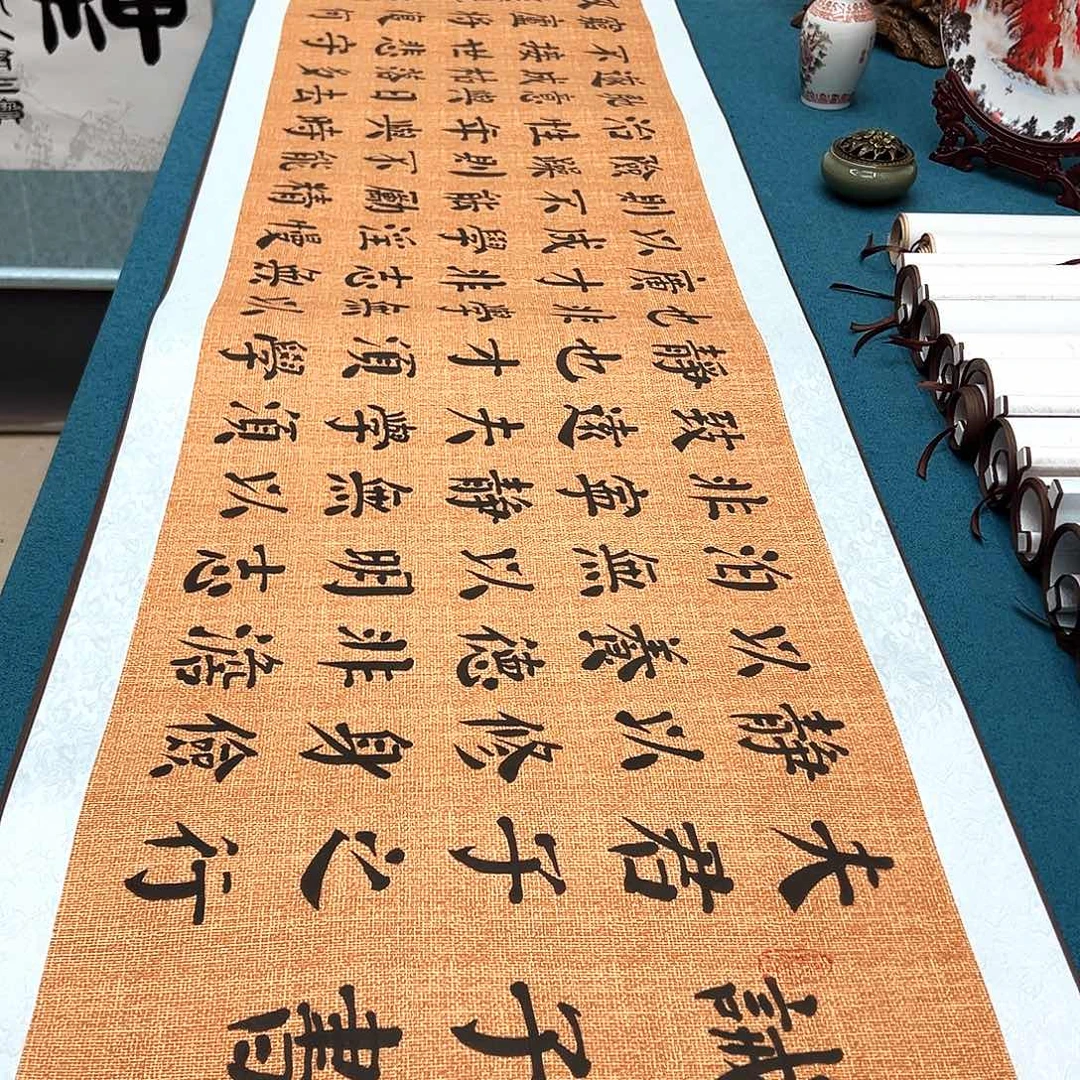 誡子書
夫君子之行
靜以修身儉
以養德非澹
泊無以明志
非寧靜無以
致遠夫學須
靜也才須學
也非學無以
廣才非志無
以成學淫慢
則不能勵精
險躁則不能
治性年與時
馳意與日去
遂成枯落多
不接世悲守
窮廬將復何